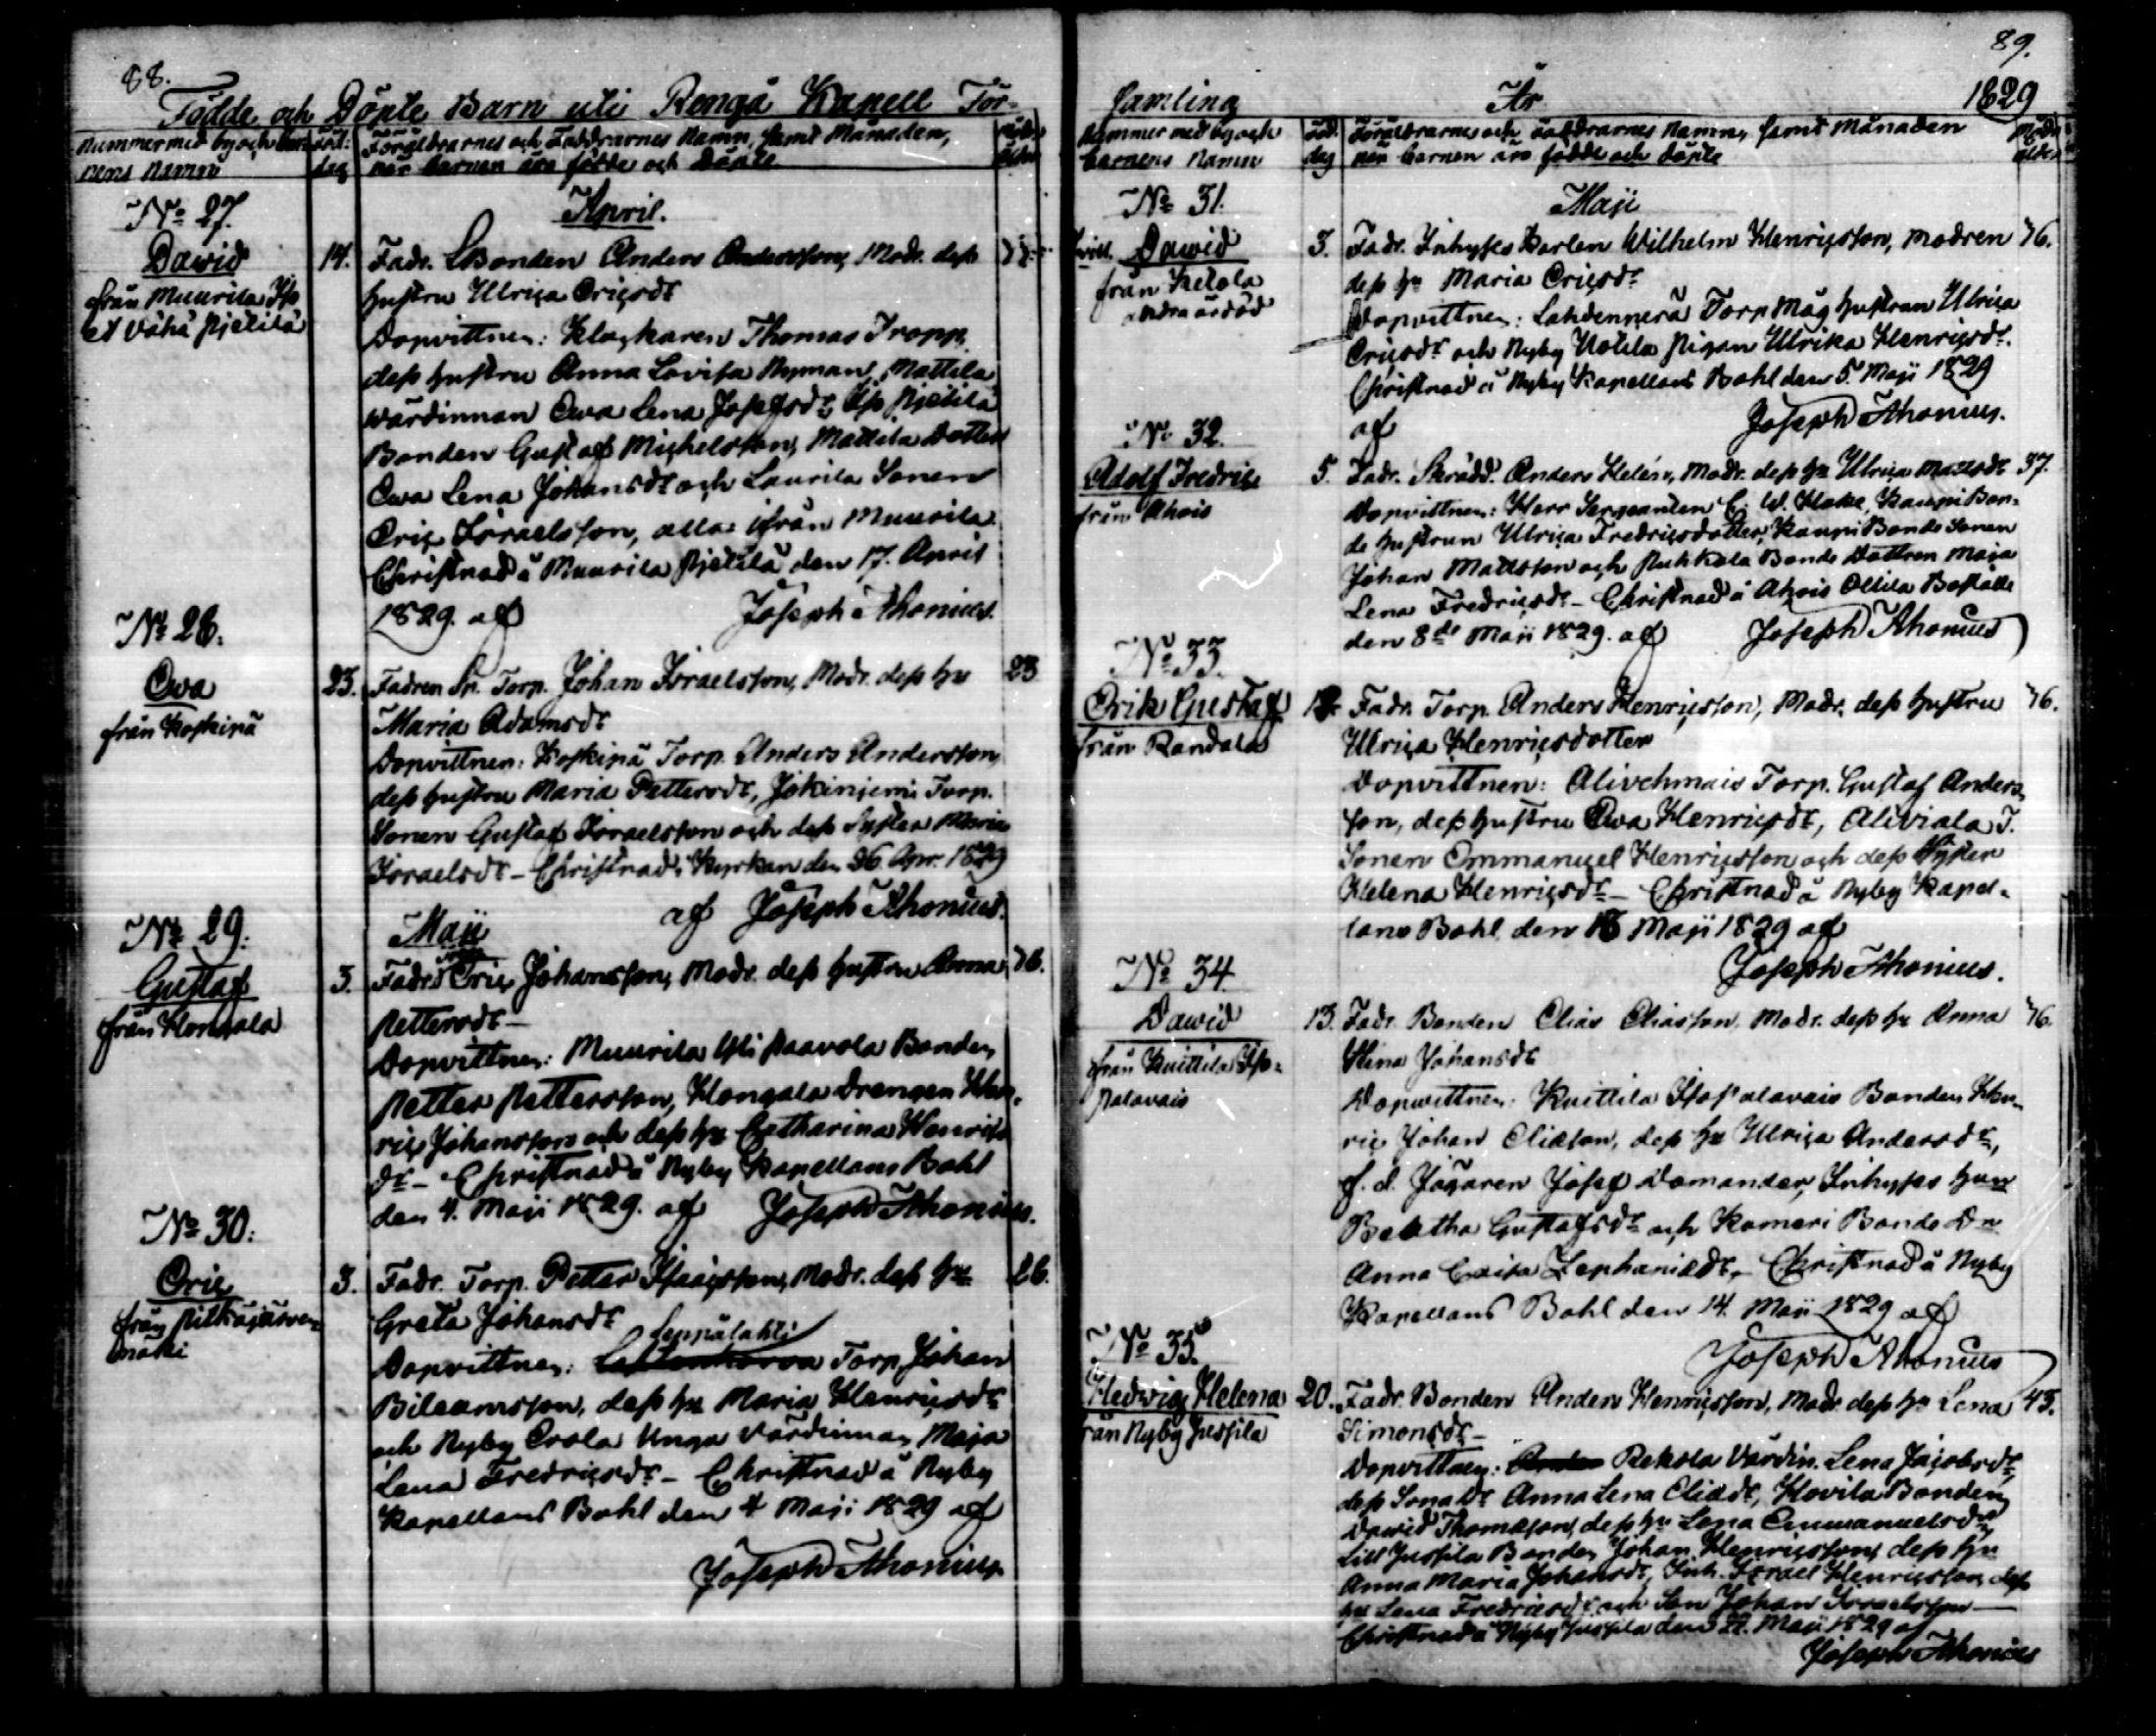 88.
Födde och Döpte Barn uti Rengå Kapell För=
Nummer med by och bar= föd:
nens Namn dag
Föräldrarnes och Faddrarnes Namn, samt Månaden,
när barnen äro födde och döpte
April.
No 27.
David
från Muurila
et Vähä Pietilä
14. Fadr. Bonden Anders Andersson, Modr. dess
hustru Ulrica Ericsdr
Dopvittnen: Klockaren Thomas Tropp,
dess hustru Anna Lovisa Nyman, Mattila
Värdinnan Eva Lena Josefsdr, Iso Pietilä
Bonden Gustaf Michelsson, Mattila Dotter
Eva Lena Johansdr och Laurila Sonen
Eric Israelsson, alla ifrån Muurila.
Christnad å Muurila Pietilä den 17. April
1829. af Joseph Ahonius.
No 28.
Eva
från Koskipä
23. Fadren Torp. Johan Israelsson, Modr. dess hu 23
Maria Adamsdr
Dopvittnen: Koskipä Torp. Anders Andersson,
dess hustru Maria Pettersdr, Jokiniemi Torp.
Sonen Gustaf Israelsson och dess Syster Maria
Israelsdr – Christnad i Kyrkan den 26 Apr. 1829
af Joseph Ahonius.
Maji
No 29.
Gustaf
från Hongala
3. Fadr. Eric Johansson, Modr. dess hustru Anna 36.
Pettersdr –
Dopvittnen: Muurila Yli Paavola Bonden
Petter Pettersson, Hongala Drengen Hen=
ric Johansson och dess hu Catharina Henrics
dr – Christnad å Nyby Kapellans Bohl
den 4. Maji 1829. af Joseph Ahonius.
No 30.
Eric
från Pitkäjärven
mäki
3. Fadr. Torp. Petter Isacsson, Modr. dess hu 26.
Greta Johansdr
Leppälahti
Dopvittnen: Torp. Johan
Bileamsson, dess hu Maria Henricsdr
och Nyby Erola Unga Värdinnan Maja
Lena Fredricsdr – Christnad å Nyby
Kapellans Bohl den 4 Maji 1829 af
Joseph Ahonius.
89.
samling År 1829
Nummer med by och föd.
barnens Namn dag
Föräldrarnes och Faddrarnes Namn, samt Månaden
när barnen äro födde och döpte
Maji
No 31.
David
från Ketola
andra är död
3. Fadr. Inhyses Karlen Wilhelm Henricsson, Modren 36.
dess hu Maria Ericsdr
Dopvittnen: Lahdenperä Torp Måg hustrun Ulrica
Ericsdr och Nyby Uotila Pigan Ulrika Henricsdr.
Christnad å Nyby Kapellans Bohl den 5. Maji 1829
af Joseph Ahonius.
No 32.
Adolf Fredric
från Ahois
5. Fadr. Skrädd. Anders Helén, Modr. dess hu Ulrica Mattsdr 37.
Dopvittnen: Herr Sergeanten C. W. Hake, Kauppi Bon=
de hustrun Ulrica Fredricsdotter, Kauppi Bonde Sonen
Johan Mattsson och Puhkala Bonde Dottren Maja
Lena Fredricsdr – Christnad å Ahois Ollila Boställe
den 8de Maji 1829. af Joseph Ahonius
No 33.
Erik Gustaf
från Randala
Fadr. Torp. Anders Henricsson, Modr. dess hustru 36.
Ulrica Henricsdotter
Dopvittnen: Torp. Gustaf Anders
son, dess hustru Eva Henricsdr, Aliviala T.
Sonen Emmanuel Henricsson och dess Syster
Helena Henricsdr – Christnad å Nyby Kapel=
lans Bohl den 18 Maji 1829 af
Joseph Ahonius.
No 34.
David
från Knittilä Iso=
palavais
13. Fadr. Bonden Elias Eliasson, Modr. dess hu Anna 36.
Stina Johansdr
Dopvittnen: Knittilä Isopalavais Bonden Hen=
ric Johan Eliasson, dess hu Ulrica Andersdr,
f. d. Jägaren Josef Domander, Inhyses hun
Beatha Gustafsdr och Komeri Bonde Dr
Anna Caisa Zephaniedr, Christnad å Nyby
Kapellans Bohl den 14. Maji 1829 af
Joseph Ahonius
No 35.
Hedwig Helena
från Nyby Jussila
20. Fadr. Bonden Anders Henricsson, Modr. dess hu Lena 43.
Simonsdr –
Dopvittnen: Rekola Värdin. Lena Jacobsdr,
dess Anna Lena Eliedr, Hovila Bonden
David Thomasson, dess hu Lena Emmanuelsdr,
Lill Jussila Bonden Johan Henricsson, dess hu
Anna Maria Johansdr, Inh. Israel Henricsson, dess
hu Lena Fredricsdr och Son Johan Israelsson –
Christnad å Nyby Jussila den 22. Maji 1829 af
Joseph Ahonius